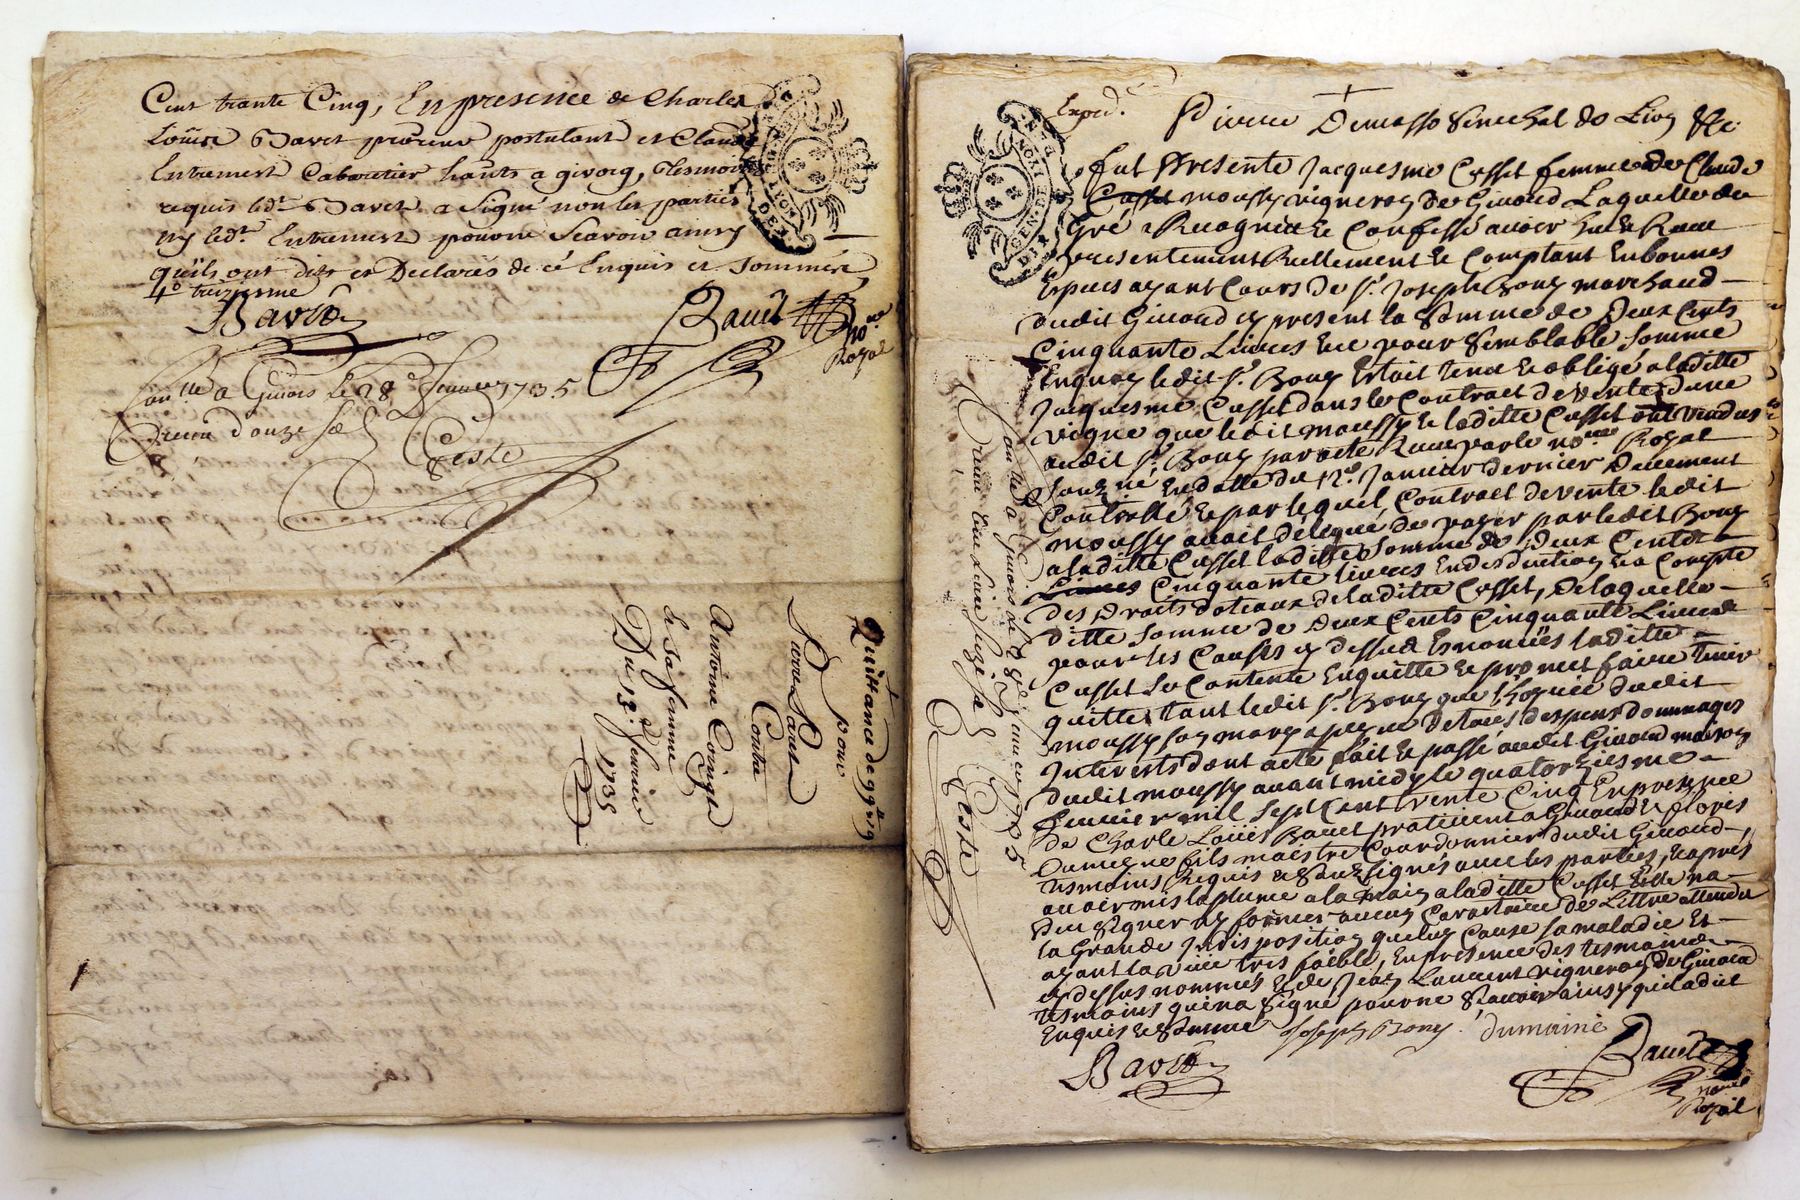 Cent trante Cinq, En presence de Charles
Loüis Bavet procureur postulant et Claude
Entremest Cabaretier hants a givorg, tesmoins
requis led.t Bavet a Signé non les parties
ny led.t Entremest pour ne Scavoir ainsy
quils ont dit et Declarés de cé Enquis et Sommés
4° treiziesme
Bavet
Bauët
no.re
Royal
a Givors le 28e 1735
Receu d'ouze s
Teste
Quittance de 99 # 19
pour
Pierre
Contre
Antoine
et sa femme
Du 12e feurier
1735
GEN. DE LION
Exped.
Pierre Demasso Senechal de Lion &c
fut Presente Jacquesme Cusset femme de Claude
moussy vigneron de Givord Laquelle de
Gré a Recognu et Confessé avoir heu et Receu
presentement Reellement et Comptant En bonnes
Especes ayant Cours de S.r Joseph Bony marchand
dudit Givord cy present la Somme de Deux Cents
Cinquante Livres et ce pour Semblable Somme
En quoy ledit S.r Bony Estait tenu et obligé a laditte
Jacquesme Cusset dans le Contract de vente d'une
vigne que ledit moussy et laditte Cusset ont vendus
audit S.r Bony par acte Receu par le no.re Royal
Souz.né En datte du 12.e Janvier dernier Deuement
Controllé et par lequel Contract de vente ledit
moussy avait delegué de payer par ledit Bony
a laditte Cusset laditte Somme de Deux Cents
Livres Cinquante livres En desduction et a Compte
des Droits dotaux de laditte Cusset, De laquelle
ditte Somme de Deux Cents Cinquante Livres
pour les Causes cy dessus Enoncées laditte
Cusset Se Contente En quitte et promet faire tenir
quitte tant ledit S.r Bony que dudit
moussy son mary a peyne De tous despens dommages
Interests dont acte fait et passé audit Givord maison
dudit moussy avant midy le quatorziesme
feuvrier mil Sept Cent trente Cinq En presence
de Charle Loüis Bavet praticien a Givord et
Dumeyne fils maistre Courdonnier dudit Givord,
tesmoins Requis et Souzsignés avec les parties, Et apres
avoir mis la plume a la main a laditte Cusset Elle na
Peu Signer ny former aucun Caractaire de Lettre attendu
la Grande Indisposition que luy Cause Sa maladie Et
ayant la vüe tres faible, En presence des tesmoins
cy dessus nommés Et de Jean Laurent vigneron de Givord
tesmoins qui na Signé pour ne Scavoir ainsy quil a dit
Enquis et Sommé Joseph Bony. dumaine
Bavet
Bauët
no.re
Royal
Controllé a Givors le 28e Janvier 1735
Receu
Teste